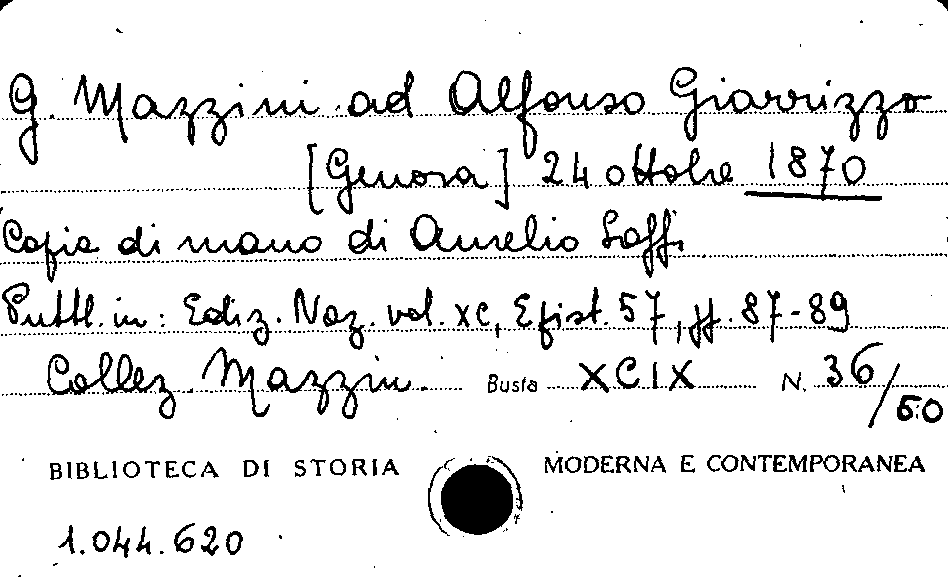 G. Mazzini ad Alfonso Giarrizzo
[Genova] 24 ottobre 1870
Copia di mano di Aurelio Saffi
Pubbl. in: Ediz. Naz. vol. XC, Epist. 57, pp. 87-89
Collez. Mazzini. Busta XCIX N. 36/50
BIBLIOTECA DI STORIA MODERNA E CONTEMPORANEA
1.044.620